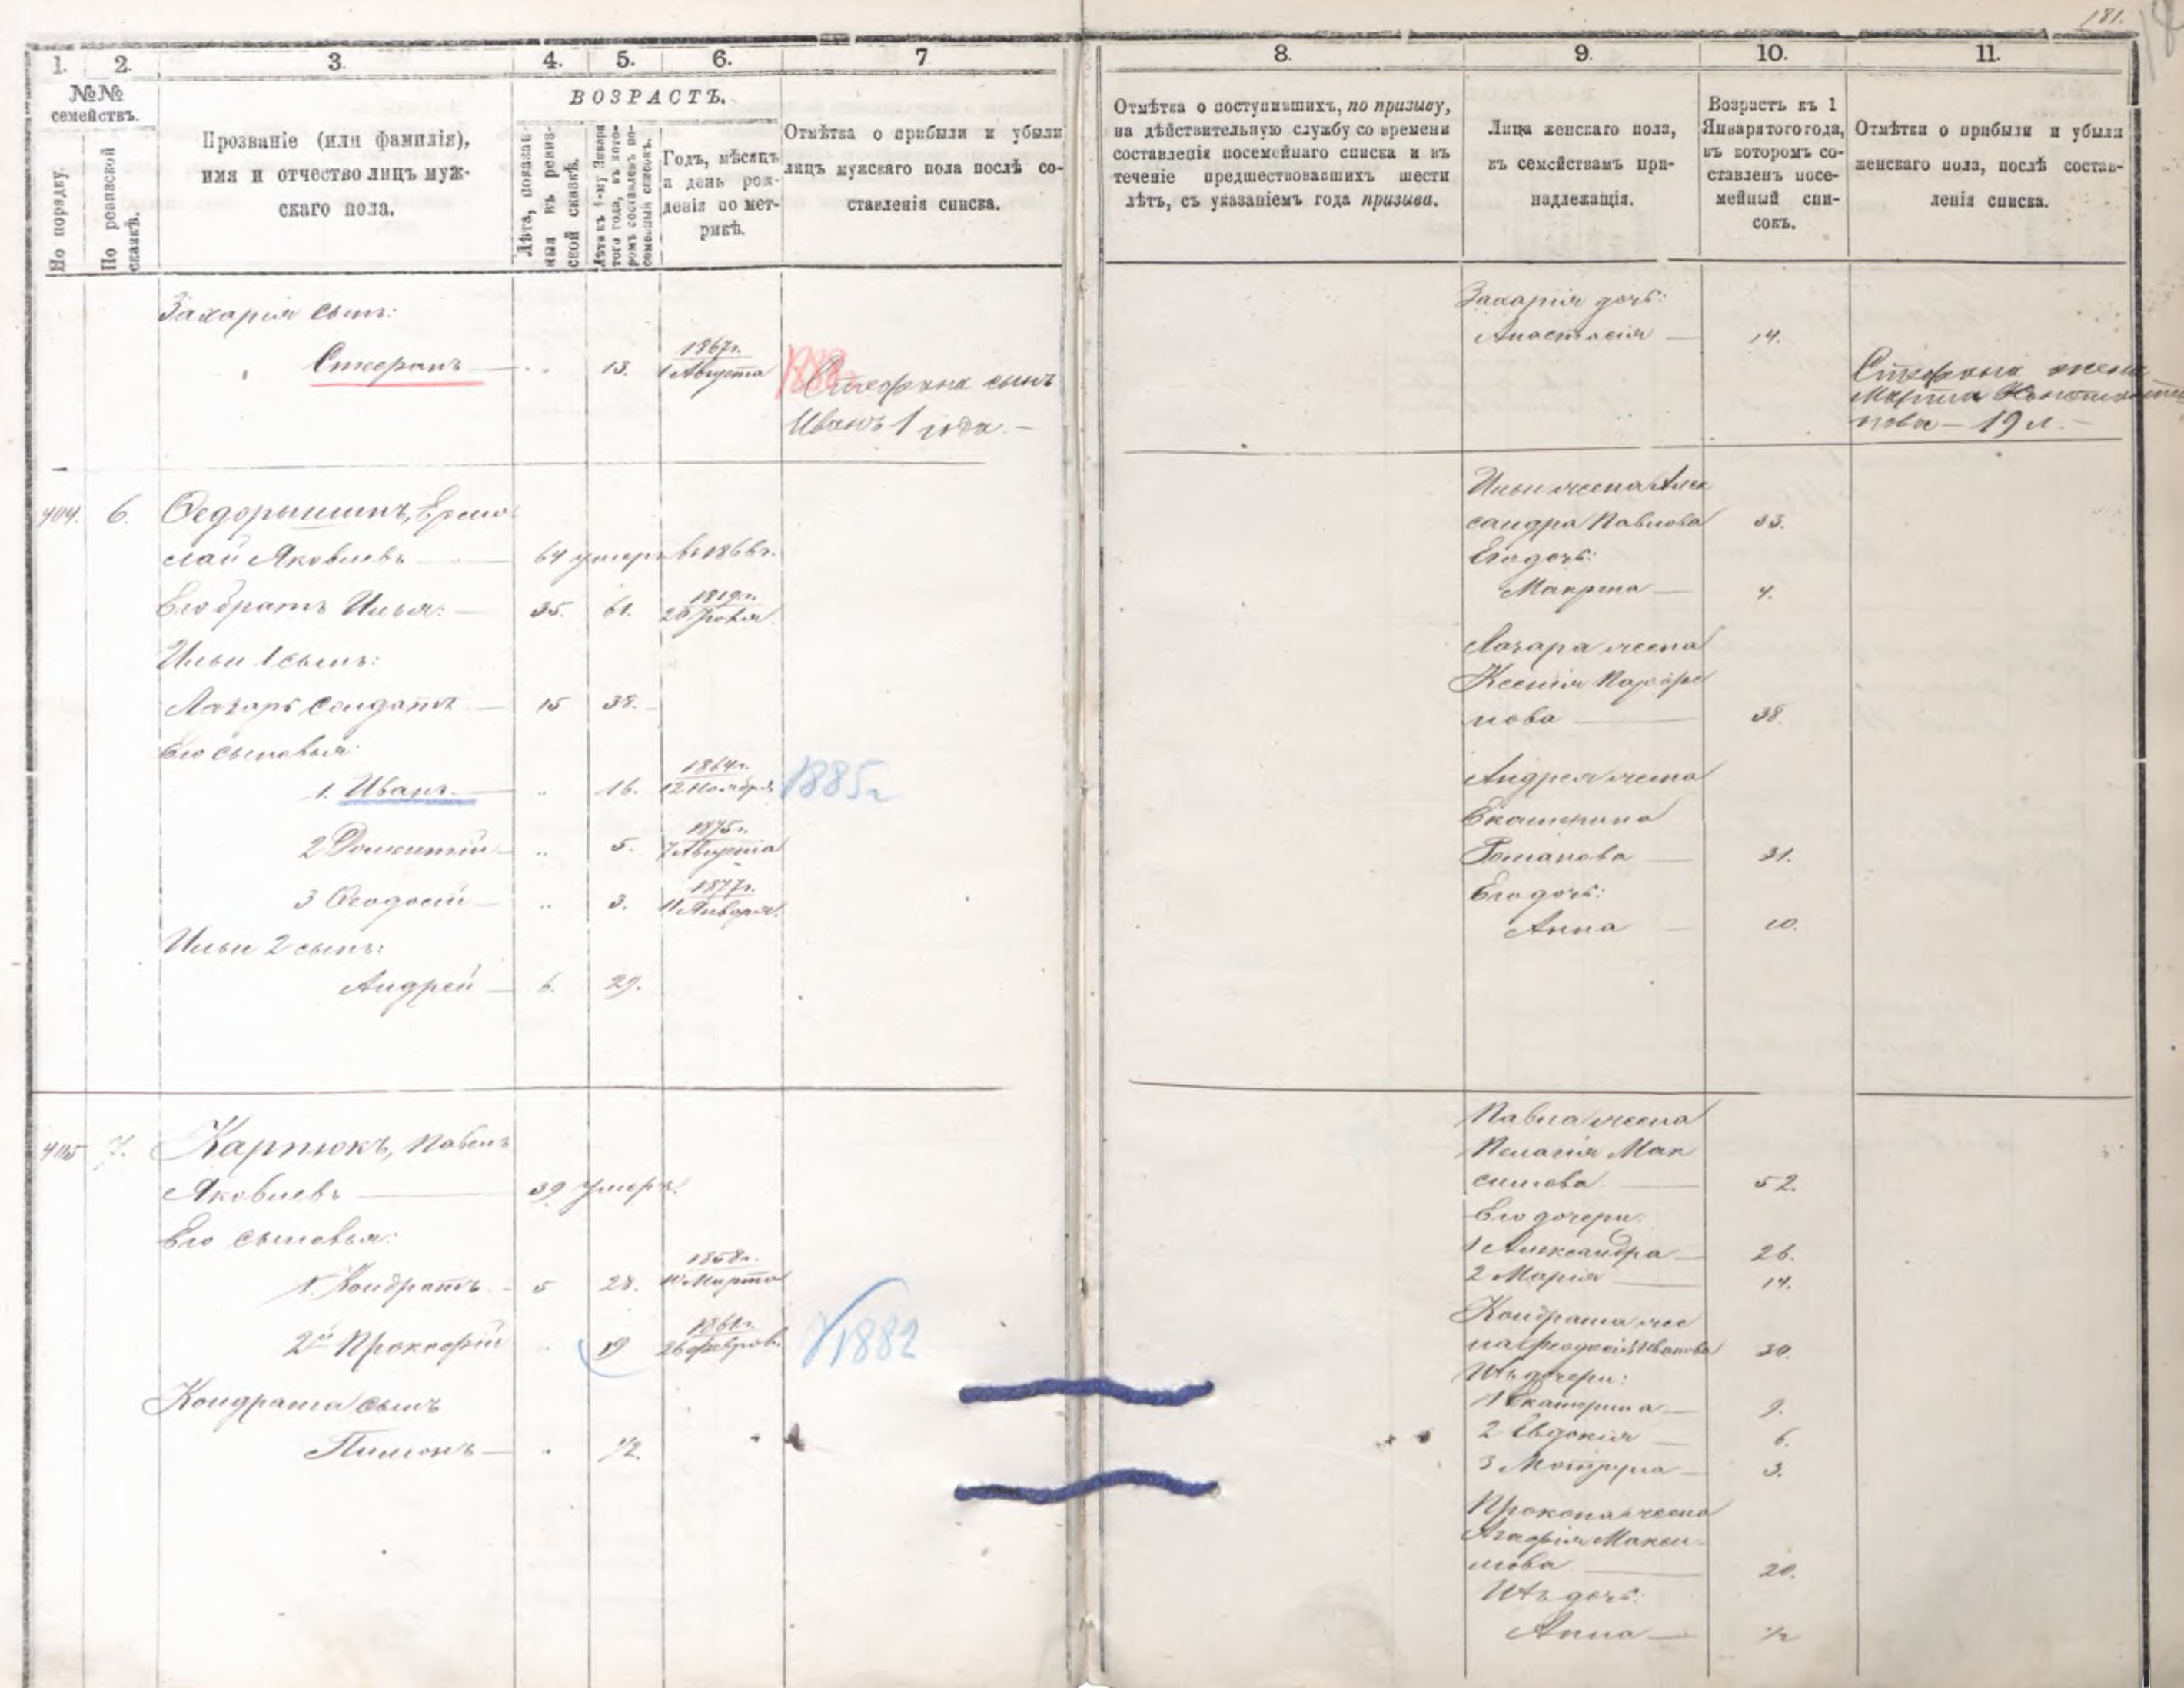 181.
1.
2.
3.
4.
5.
6.
7
8.
9.
10.
11.
№№
семействъ.
По порядку.
По ревизской
сказкѣ.
Прозваніе (или фамилія),
имя и отчество лицъ муж-
скаго пола.
ВОЗРАСТЪ.
Лѣта, показан-
ныя въ ревиз-
ской сказкѣ.
Лѣта къ 1-му Января
того года, въ кото-
ромъ составленъ по-
семейный списокъ.
Годъ, мѣсяцъ
и день рож-
денія по мет-
рикѣ.
Отмѣтка о прибыли и убыли
лицъ мужскаго пола послѣ со-
ставленія списка.
Отмѣтка о поступившихъ, по призыву,
на дѣйствительную службу со времени
составленія посемейнаго списка и въ
теченіе предшествовавшихъ шести
лѣтъ, съ указаніемъ года призыва.
Лица женскаго пола,
къ семействамъ при-
надлежащія.
Возрастъ къ 1
Января того года,
въ которомъ со-
ставленъ посе-
мейный спи-
сокъ.
Отмѣтки о прибыли и убыли
женскаго пола, послѣ состав-
ленія списка.
Захарія сынъ:
Стефанъ — 13. 1867г. 1 Августа
1888
Стефана сынъ
Иванъ 1 года. —
Захарія дочь:
Анастасія — 14.
Стефана жена
Марта Константи
нова — 19 л. —
404. 6. Федорышинъ, Ермо
лай Яковлевъ — 64 умеръ въ 1866г.
Его братъ Илья: — 35. 61. 1819г. 20 Іюля.
Ильи 1 сынъ:
Лазарь солдатъ — 15 38. —
Его сыновья:
1. Иванъ — 16. 1864г. 12 Ноября 1885г
2 Дометій — 5. 1875г. 7 Августа
3 Феодосій — 3. 1877г. 11 Января.
Ильи 2 сынъ:
Андрей — 6. 29.
Ильи жена Алек
сандра Павлова 53.
Его дочь:
Макрена — 4.
Лазара жена
Ксенія Порфире
нова — 38.
Андрея жена
Екатерина
Романова — 31.
Его дочь:
Анна — 10.
405 7. Карпюкъ, Павелъ
Яковлевъ — 39 умеръ.
Его сыновья:
1. Кондратъ — 5 28. 1858г. 10 Марта
2й Прокофій 19 1861г. 26 Феврал. 1882
Кондрата сынъ
Пименъ — 1/2.
Павла жена
Пелагія Мак
симова — 52.
Его дочери:
1 Александра — 26.
2 Марія — 14.
Кондрата же
на Феодосія Иванова 30.
Ихъ дочери:
1 Екатерина — 9.
2 Евдокія — 6.
3 Мотруна — 3.
Прокопа жена
Агафія Макси-
мова. — 20.
Ихъ дочь:
Анна — 1/2